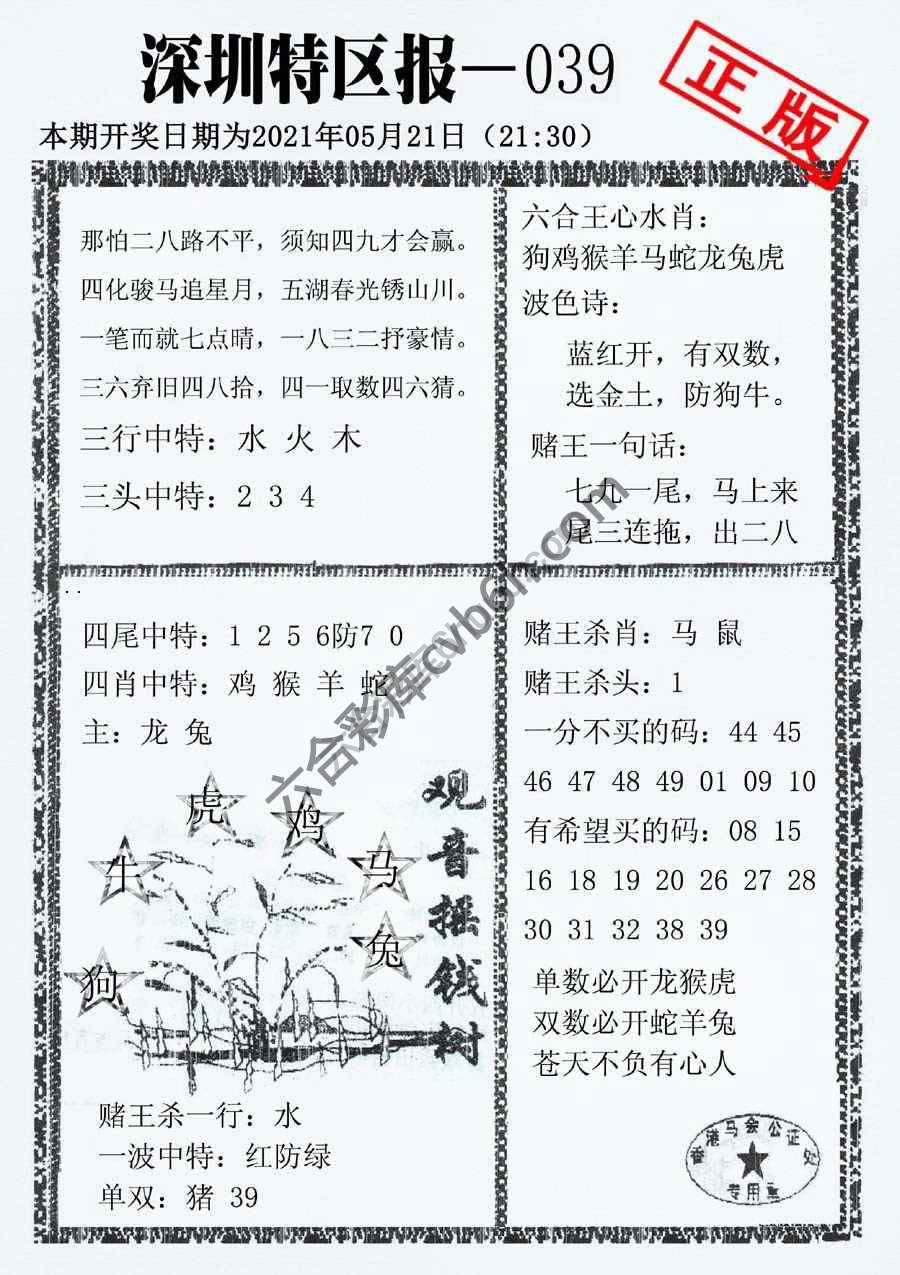 深圳特区报—039
正版
本期开奖日期为2021年05月21日（21:30）
那怕二八路不平，须知四九才会赢。
四化骏马追星月，五湖春光锈山川。
一笔而就七点晴，一八三二抒豪情。
三六弃旧四八拾，四一取数四六猜。
三行中特：水 火 木
三头中特：2 3 4
六合王心水肖：
狗鸡猴羊马蛇龙兔虎
波色诗：
蓝红开，有双数，
选金土，防狗牛。
赌王一句话：
七九一尾，马上来
尾三连拖，出二八
四尾中特：1 2 5 6防7 0
四肖中特：鸡 猴 羊 蛇
主：龙 兔
虎
鸡
牛
马
兔
狗
观音摇钱树
赌王杀一行：水
一波中特：红防绿
单双：猪 39
赌王杀肖：马 鼠
赌王杀头：1
一分不买的码：44 45
46 47 48 49 01 09 10
有希望买的码：08 15
16 18 19 20 26 27 28
30 31 32 38 39
单数必开龙猴虎
双数必开蛇羊兔
苍天不负有心人
香港马会公证处
专用章
六合彩库cvb6h.com